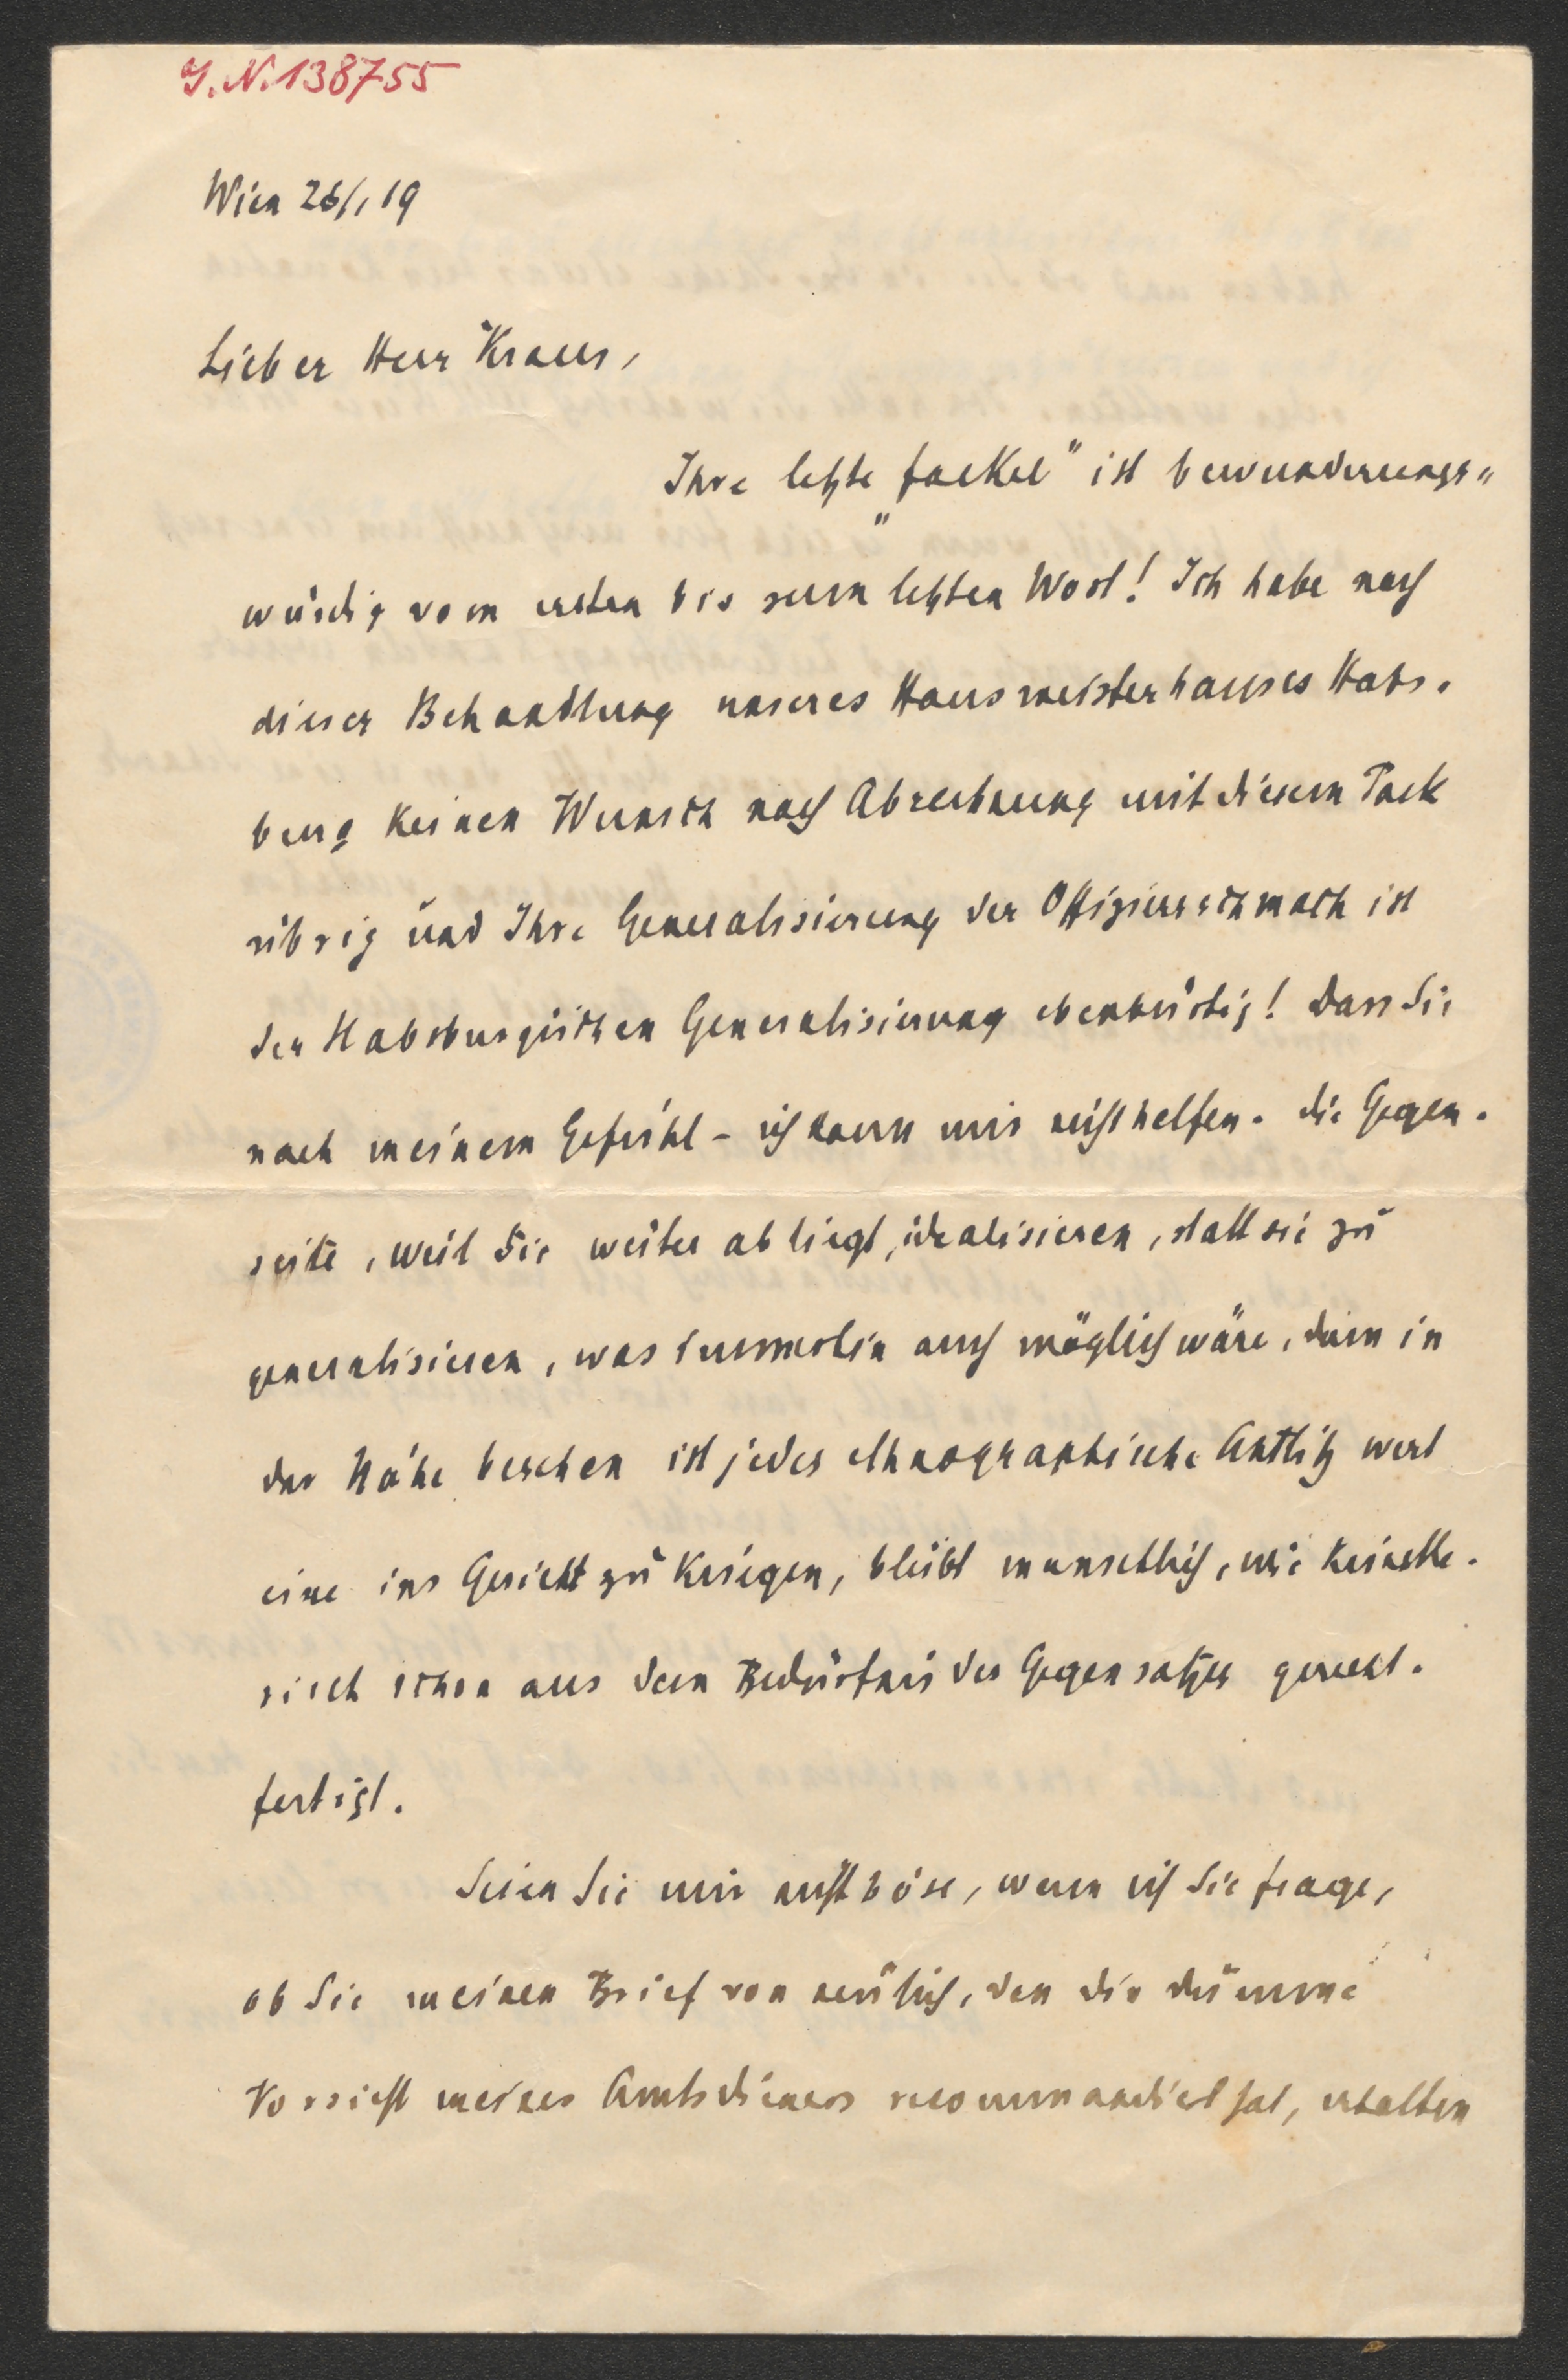 J.N. 138755
Wien 26/1 19
Lieber Herr Kraus,
Ihre letzte „Fackel" ist bewunderungs-
würdig vom ersten bis zum letzten Wort! Ich habe nach
dieser Behandlung unseres Hausmeisterhauses Habs-
burg keinen Wunsch nach Abrechnung mit diesem Pack
übrig und Ihre Generalisierung der Offiziersschmach ist
der Habsburgischen Generalisierung ebenbürtig! Dass Sie
nach meinem Gefühl – ich kann mir nicht helfen – die Gegen-
seite, weil sie weiter ab liegt, idealisieren, statt sie zu
generalisieren, was immerhin auch möglich wäre, denn in
der Nähe besehen ist jedes ethnographische Antlitz wert
eine ins Gesicht zu kriegen, bleibt menschlich, wie
schon aus dem Bedürfnis des Gegensatzes gerecht-
fertigt.
Seien Sie mir nicht böse, wenn ich Sie frage,
ob Sie meinen Brief von neulich, den die dumme
Vorsicht meines Amtsdieners recommandiert hat, erhalten